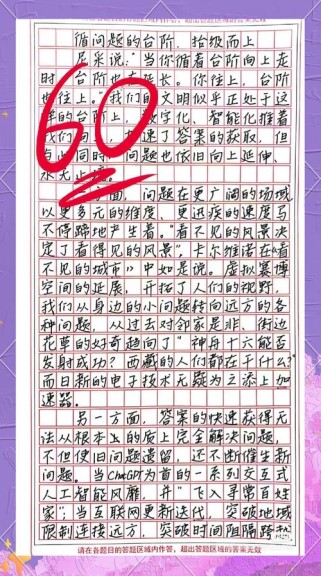 循问题的台阶，拾级而上
尼采说："当你循着台阶向上走
时，台阶也在延长。你往上，台阶
也往上。"我们的文明似乎正处于这
60
的台阶上，数字化、智能化推着
我们向 速了答案的获取，但
与 同时 问题也依旧向上延伸、
永无止境。
方面，问题在更广阔的场域
以更多元的维度、更迅疾的速度马
不停蹄地产生着。"看不见的风景决
定了看得见的风景"，卡尔维诺在《看
不见的城市》中如是说。虚拟赛博
空间的延展，开拓了人们的视野，
我们从身边的小问题转向远方的各
种问题，从过去对邻家是非、街边
花草的好奇趋向了"神舟十六能否
发射成功？西藏的人们都在干什么？"
而日新的电子技术无疑为之添上加
速器。
另一方面，答案的快速获得无
法从根本上的质上完全解决问题，
不但使旧问题遗留，还不断催生新
问题。当ChatGPT为首的一系列交互式
人工智能风靡，并"飞入寻常百姓
家"，当互联网更新迭代，突破地域
限制连接远方，突破时间阻隔跨
请在各题目的答题区域内作答，超出答题区域的答案无效